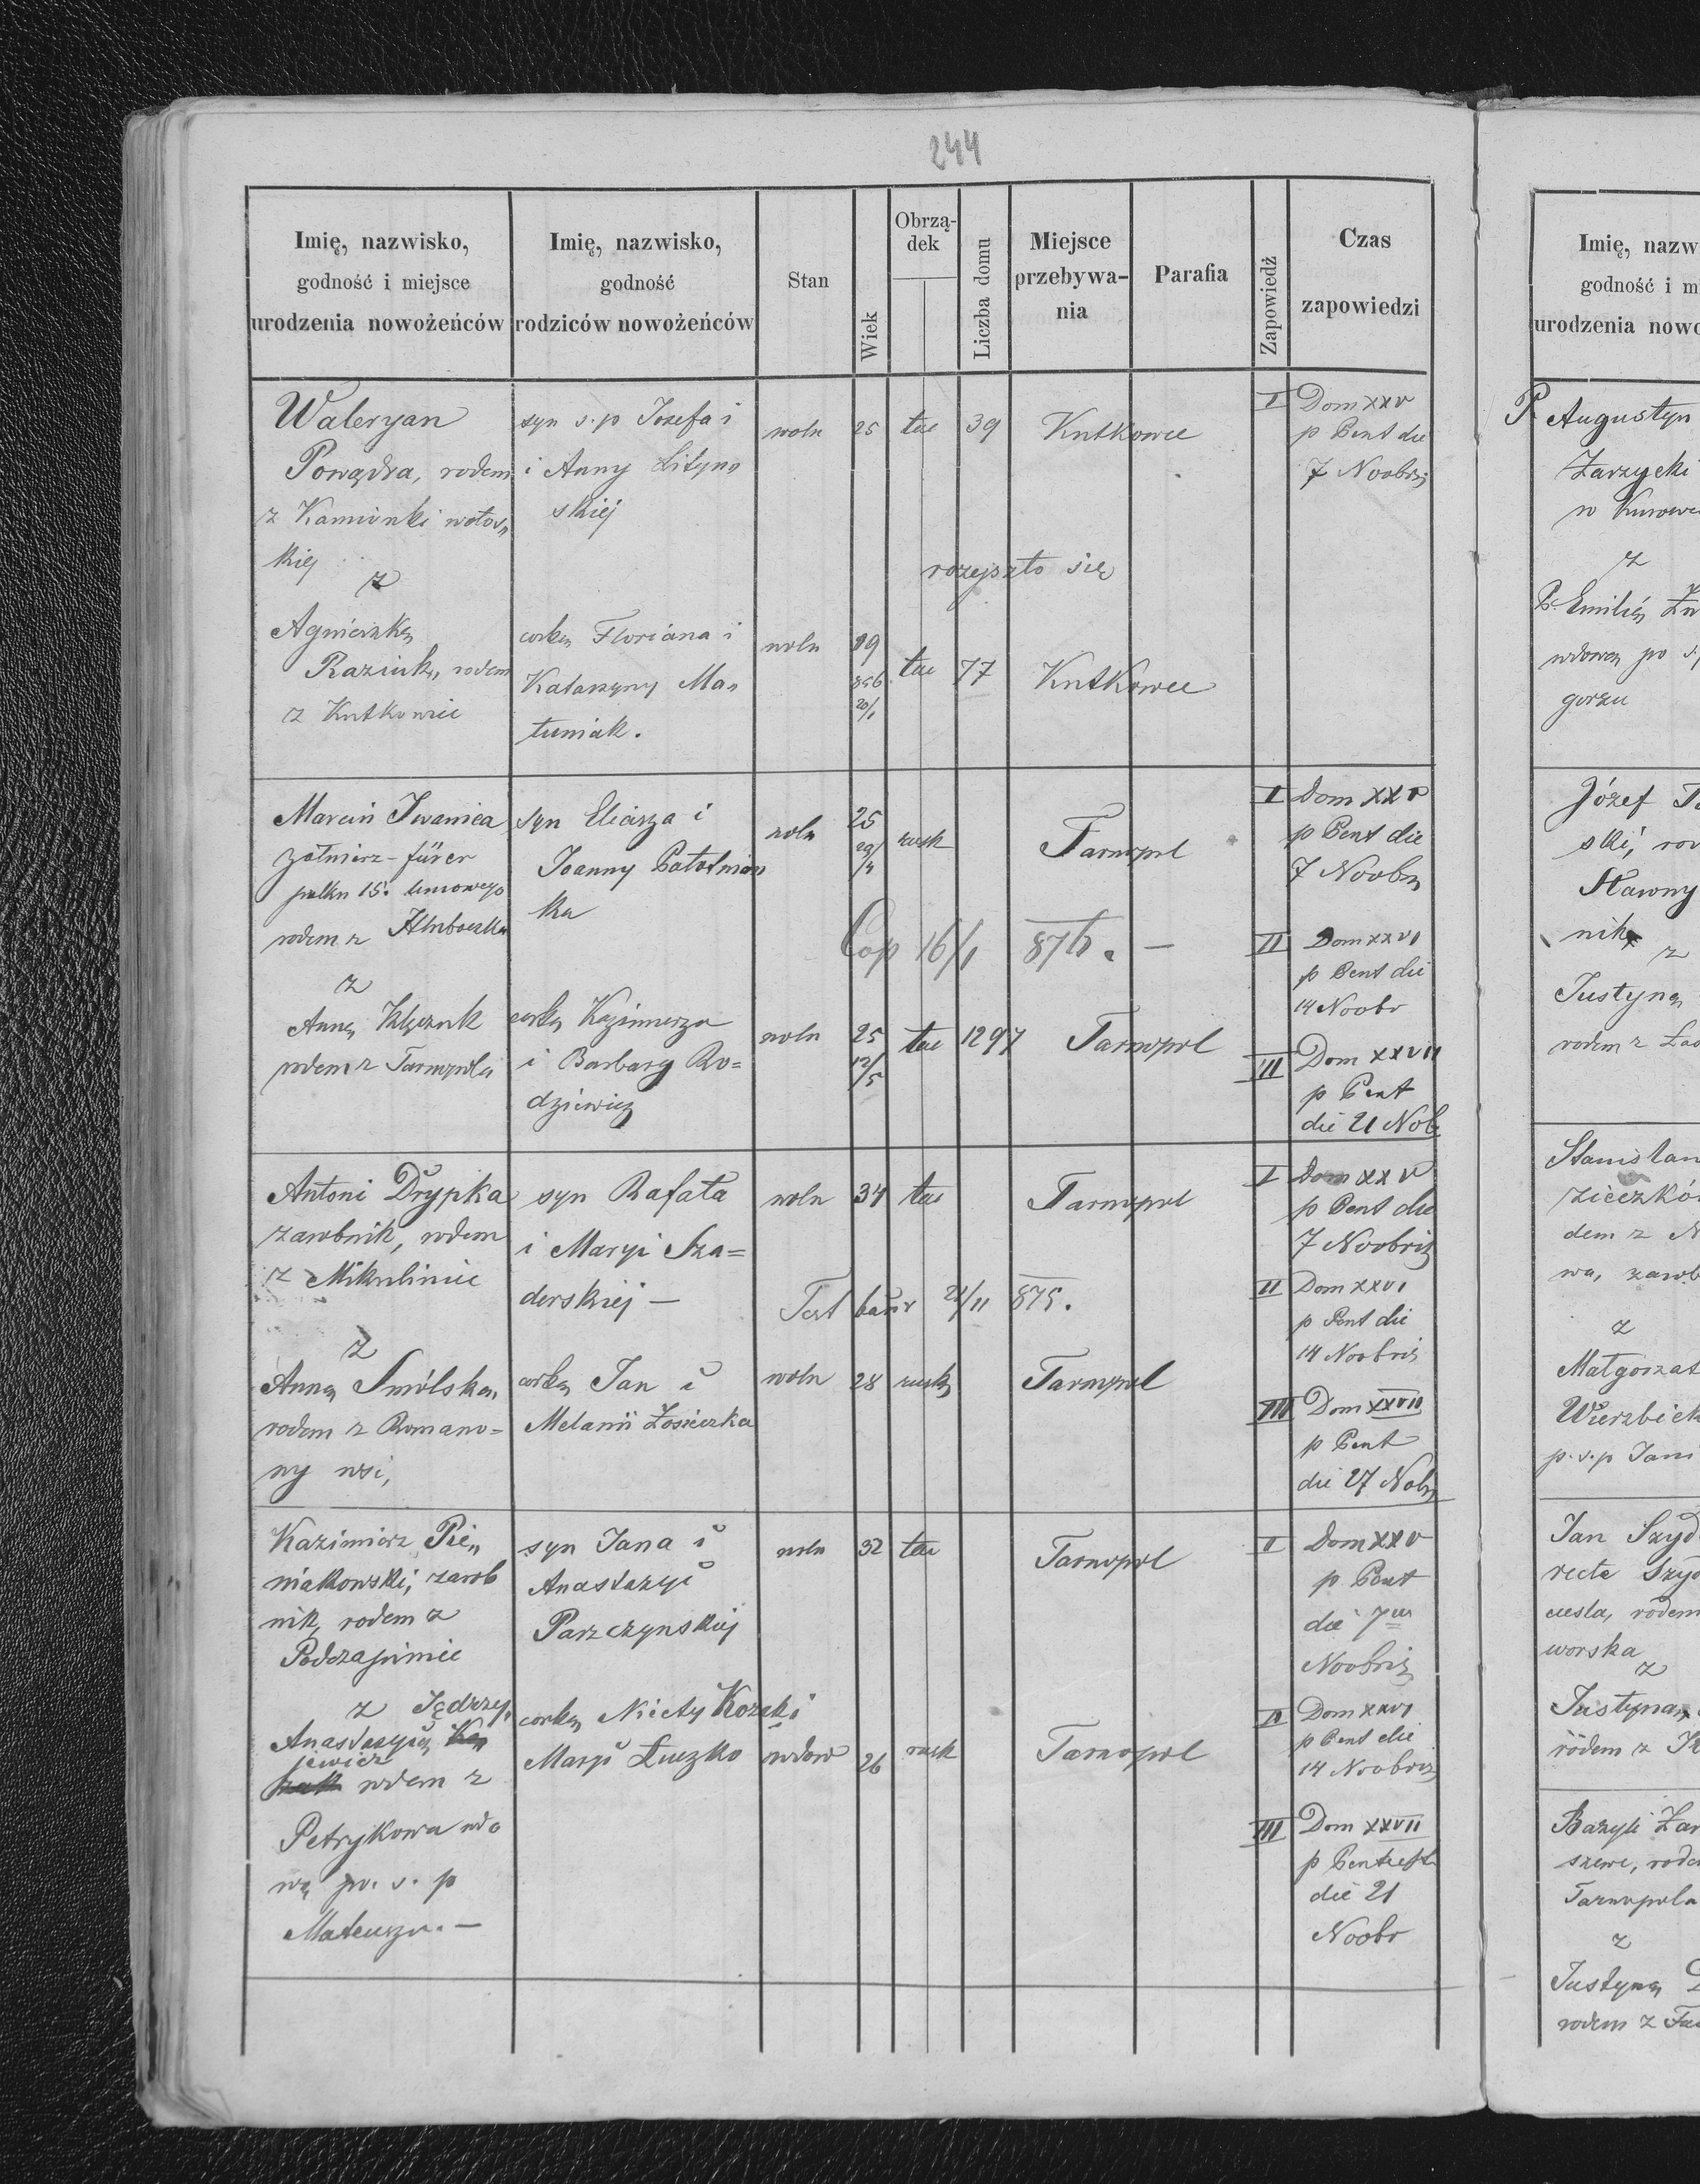 244
Imię, nazwisko,
godność i miejsce
urodzenia nowożeńców
Imię, nazwisko,
godność
rodziców nowożeńców
Stan
Wiek
Obrzą-
dek
Liczba domu
Miejsce
przebywa-
nia
Parafia
Zapowiedź
Czas
zapowiedzi
Waleryan
rodem
z Kamionki
kiej
z
syn s. p Josefa i
i Anny Lityn„
skiej
woln
25
łac
39
Kutkowce
I
Dom XXV
p Pent die
7 Noobris
rozejszło się
Agnieszką
rodem
z Kutkowiec
corką Floriana i
Katarzyny Ma„
tuniak.
woln
19
856
20/1
łac
77
Kutkowce
Marcin Iwanica
żołnierz - fürer
pułku 15. liniowego
rodem z
z
syn Eliasza i
Joanny
ka
woln
25
rusk
Tarnopol
I
Dom XXV
p Pent die
7 Noobris
Cop 16/1 876. —
II
Dom XXVI
p Pent die
14 Noobr
Anną
rodem z Tarnopola
corką Kazimierza
i Barbary Ro=
dziewicz
woln
25
12/5
łac
1297
Tarnopol
III
Dom XXVII
p Pent
die 21 Nob
Antoni Drypka
zarobnik, rodem
z Mikuliniec
z
syn Rafała
i Maryi Sza=
derskiej —
woln
34
łac
Tarnopol
I
Dom XXV
p Pent die
7 Noobris
Test 875.
II
Dom XXVI
p Pent die
14 Noobris
Anną Smólską,
rodem z Romano=
wy wsi,
corką Jan i
Melanii Łosieczka
woln
28
rusk
Tarnopol
III
Dom XXVII
p Pent
die 27 Nobr
Kazimierz Pie„
niakowski, zarob
nik, rodem z
Podzajmiec
z Jędrzy„
syn Jana i
Anastazyi
Parzczynskiej
woln
32
łac
Tarnopol
I
Dom XXV
p Pent
die 7
Noobris
Anastazyią
jewicz
rodem z
Petrykowa wdo
wą po. s. p
Mateuszu. —
corką Nicety Kozaki
Maryi Łuczko
wdow
26
rusk
Tarnopol
II
Dom XXVI
p Pent die
14 Noobris
III
Dom XXVII
p Pentecost
die 21
Noobr
Imię, nazw
godność i m
urodzenia nowo
P. Augustyn
Zarzycki
w
z
P. Emilią
wdową po s.
gorzu
Józef
ski, rod
Sławny
nik
z
Justyną
rodem z
Stanisław
dem z
wa, zarob
z
Małgorzat
Wierzbick
p. s. p Jani
Jan Szyd
recte Szyd
ciesla, rodem
worska
z
Justyną
rodem z
Bazyli
szewc, rode
Tarnopola
z
Justyną
rodem z